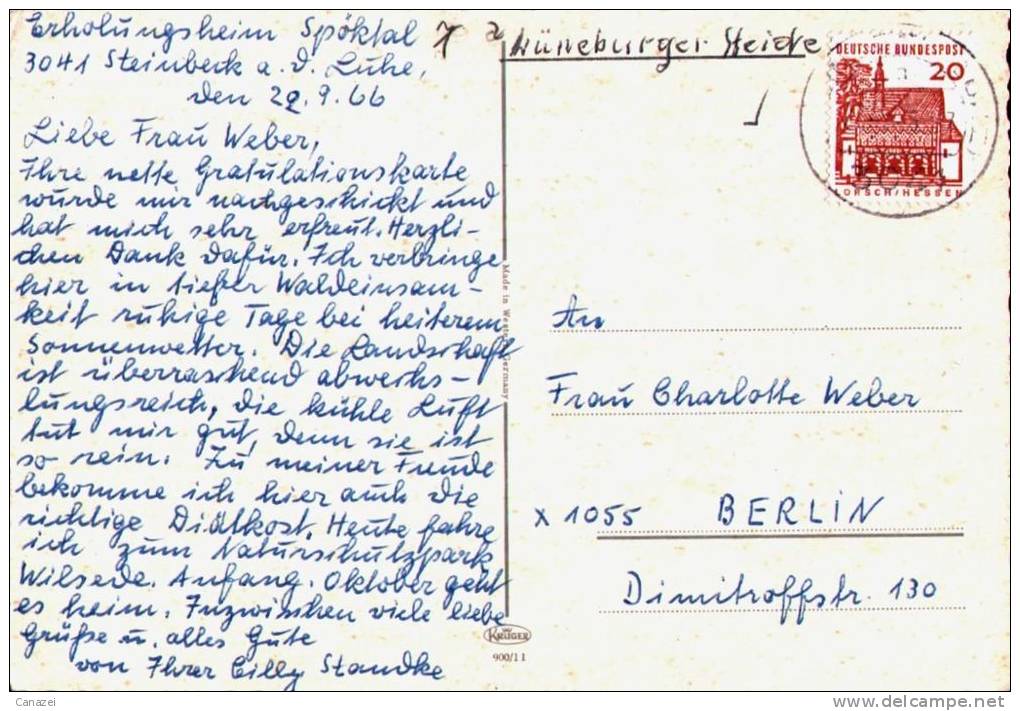 Erholungsheim Spöktal
3041 Steinbeck a. d. Luhe,
den 22.9.66
Liebe Frau Weber,
Ihre nette Gratulationskarte
wurde mir nachgeschickt und
hat mich sehr erfreut. Herzli-
chen Dank dafür. Ich verbringe
hier in tiefer Waldeinsam-
keit ruhige Tage bei heiterem
Sonnenwetter. Die Landschaft
ist überraschend abwechs-
lungsreich, die kühle Luft
tut mir gut, denn sie ist
so rein. Zu meiner Freude
bekomme ich hier auch die
richtige Diätkost. Heute fahre
ich zum Naturschutzpark
Wilsede. Anfang. Oktober geht
es heim. Inzwischen viele liebe
Grüße u. alles Gute
von Ihrer Cilly Standke
Lüneburger Heide
DEUTSCHE BUNDESPOST
20
LORSCH/HESSEN
Made in Western Germany
An
Frau Charlotte Weber
X 1055 BERLIN
Dimitroffstr. 130
KRÜGER
900/11
Canazei
www.delcampe.net